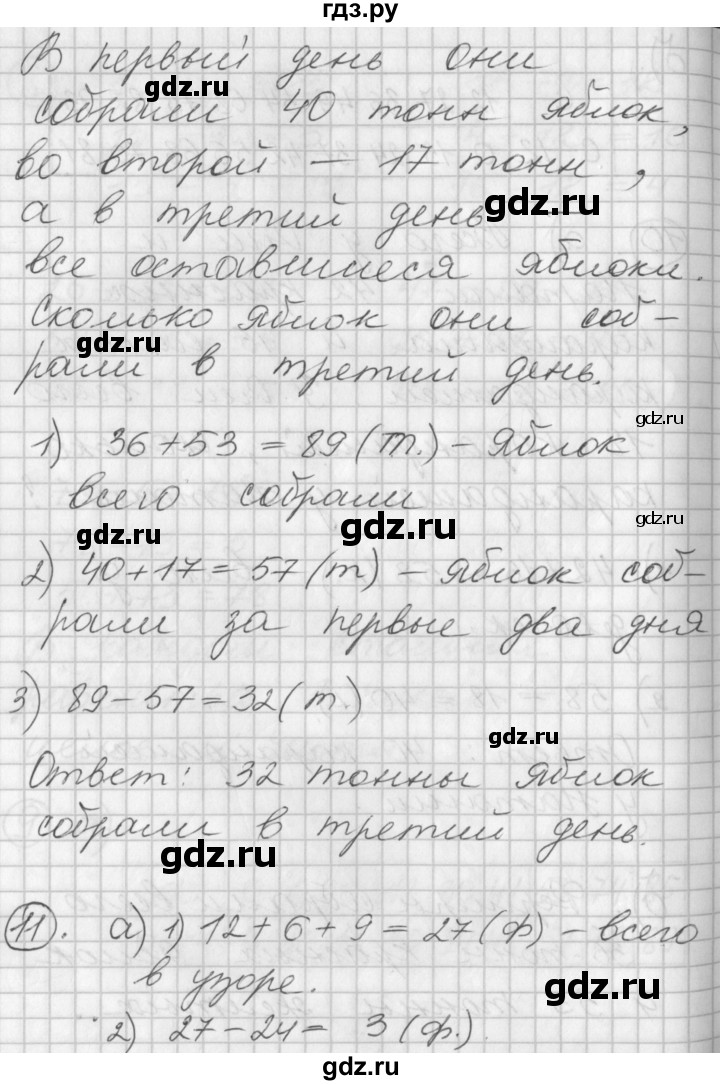 гдз.ру
В первый день они
gdz.ru
собрали 40 тонн яблок,
во второй – 17 тонн,
gdz.ru
а в третий день
все оставшиеся яблоки.
Сколько яблок они соб-
gdz.ru
рали в третий день.
gdz.ru
1) 36+53 = 89 (т.) – яблок
всего собрали
gdz.ru
gdz.ru
gdz.ru
2) 40+17=57 (т) – яблок соб-
рали за первые два дня
3) 89–57=32 (т.)
gdz.ru
Ответ: 32 тонны яблок
собрали в третий день.
gdz.ru
11. а) 1) 12+6+9=27 (ф) – всего
в узоре.
gdz.ru
2) 27–24= 3 (ф.)
gdz.ru